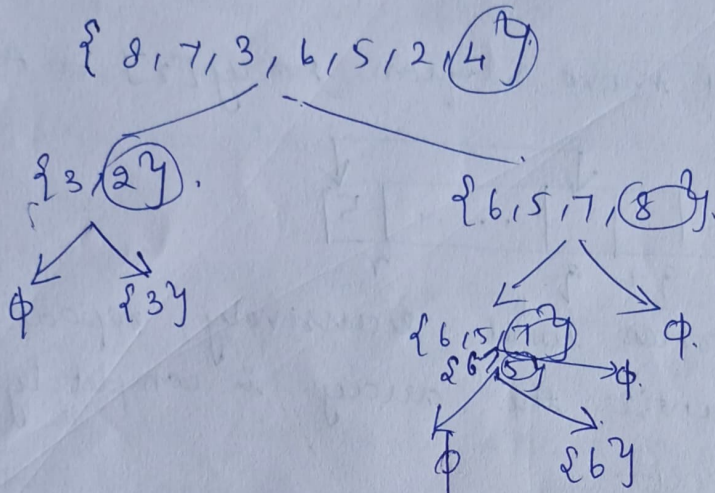 { 8, 7, 3, 6, 5, 2, 4 }
{ 3, 2 }.
{ 6, 5, 7, 8 }.
ϕ
{ 3 }
{ 6, 5, 7 }
ϕ.
{ 6, 5 }
ϕ.
ϕ
{ 6 }